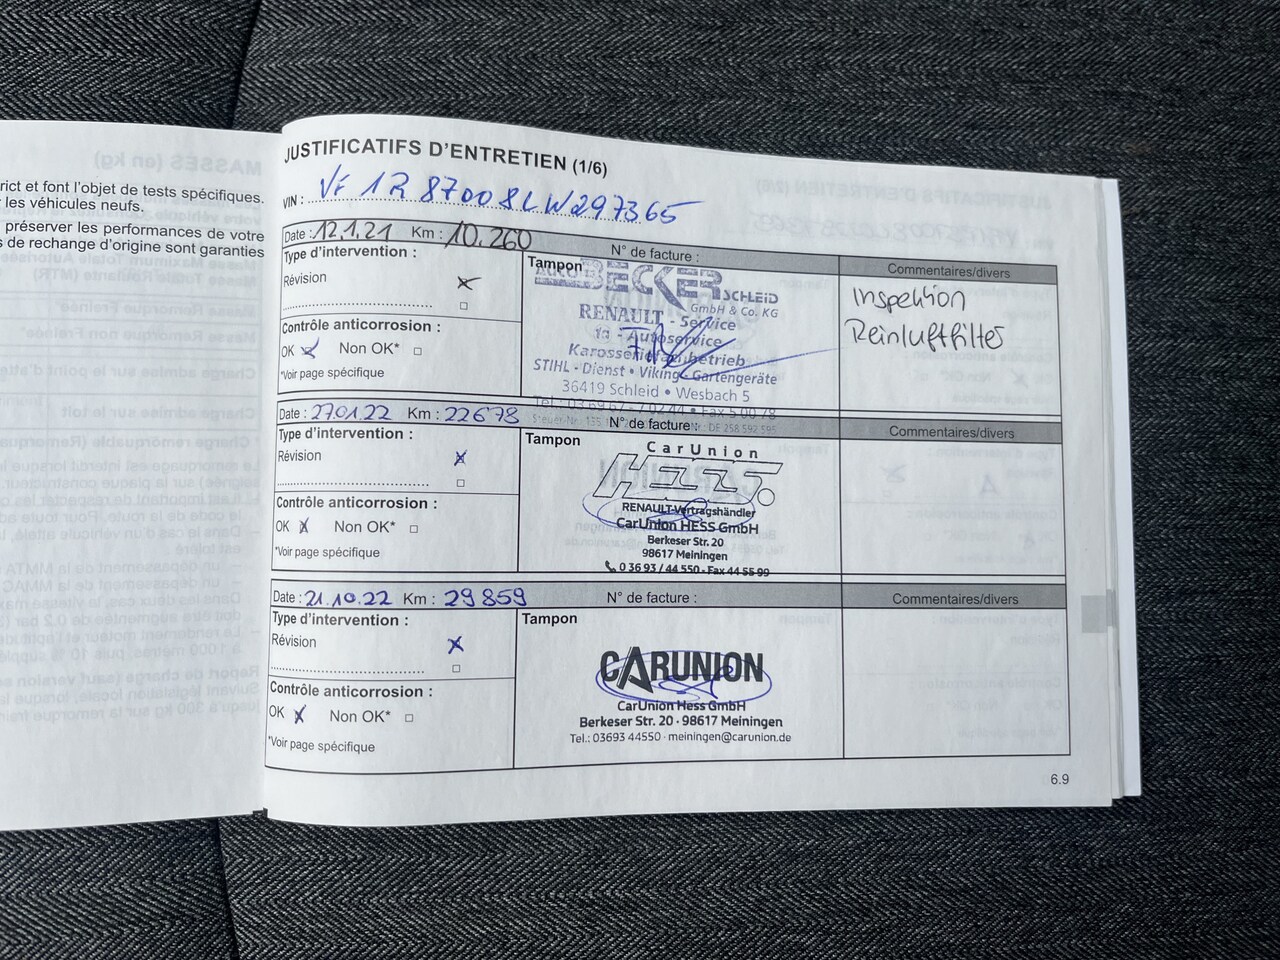 rict et font l'objet de tests spécifiques.
les véhicules neufs.
préserver les performances de votre
s de rechange d'origine sont garanties
MASSES (en kg)
JUSTIFICATIFS D'ENTRETIEN (1/6)
VIN : VF1R87008LW297365
Date : 12.1.21 Km : 10.260
N° de facture :
Type d'intervention :
Révision
Contrôle anticorrosion :
OK Non OK*
*Voir page spécifique
Tampon
AUTO BECKER SCHLEID
GmbH & Co. KG
RENAULT - Service
1a - Autoservice
Karosseriefachbetrieb
STIHL - Dienst • Viking - Gartengeräte
36419 Schleid • Wesbach 5
Tel.: 03 69 67 - 7 02 44 • Fax 5 00 78
Commentaires/divers
Inspektion
Reinluftfilter
Date : 27.01.22 Km : 22678
N° de facture :
Type d'intervention :
Révision
Contrôle anticorrosion :
OK Non OK*
*Voir page spécifique
Tampon
CarUnion
Hess.
RENAULT-Vertragshändler
CarUnion HESS GmbH
Berkeser Str. 20
98617 Meiningen
0 36 93 / 44 550 - Fax 44 55 99
Commentaires/divers
Date : 21.10.22 Km : 29859
N° de facture :
Type d'intervention :
Révision
Contrôle anticorrosion :
OK Non OK*
*Voir page spécifique
Tampon
CARUNION
CarUnion Hess GmbH
Berkeser Str. 20 · 98617 Meiningen
Tel.: 03693 44550 · meiningen@carunion.de
Commentaires/divers
6.9